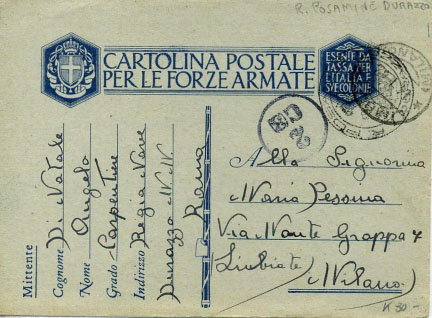 R. POSAMINE DURAZZO
CARTOLINA POSTALE
PER LE FORZE ARMATE
ESENTE DA
TASSA PER
L'ITALIA E
SVE COLONIE
MILANO
Alla Signorina
Maria Pessina
Via Monte Grappa 4
Limbiate
(Milano)
Mittente
Cognome Di Natale
Nome Angelo
Grado
Indirizzo Regia Nave
Durazzo
30-